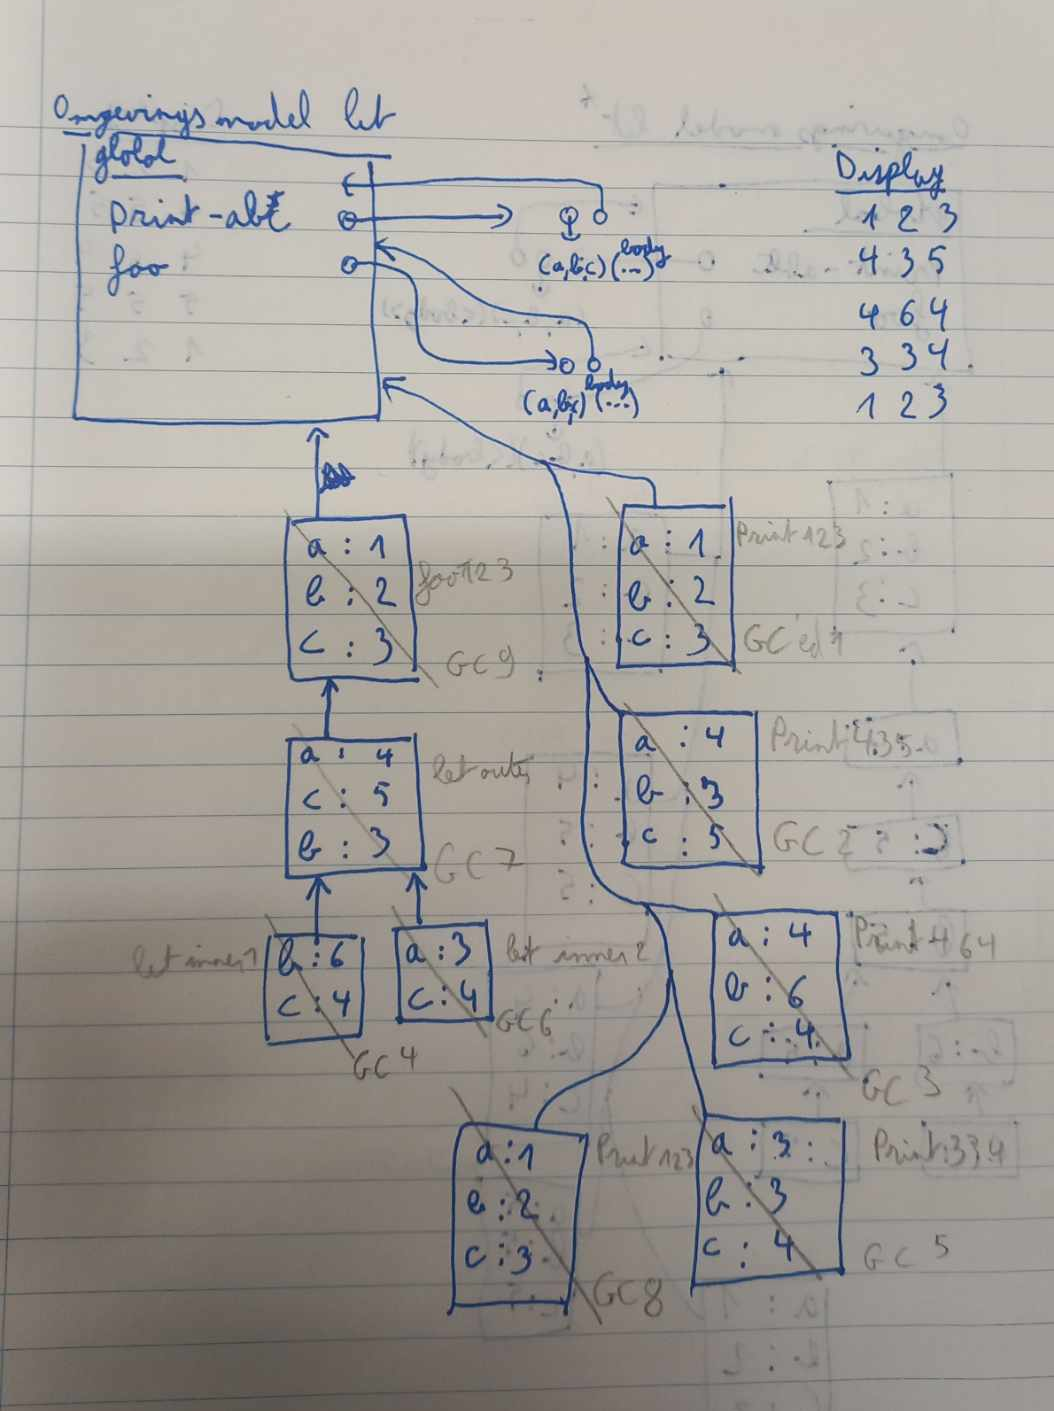 Omgevingsmodel let
global
print-abc
foo
(a,b,c) (...) body
(a,b,c) (...) body
Display
1 2 3
4 3 5
4 6 4
3 3 4
1 2 3
a : 1
b : 2
c : 3
foo 123
GC 9
a : 1
b : 2
c : 3
Print 123
GC'ed 1
a : 4
c : 5
b : 3
let outer
GC 7
a : 4
b : 3
c : 5
Print 435
GC 2
let inner 1
b : 6
c : 4
GC 4
a : 3
c : 4
let inner 2
GC 6
a : 4
b : 6
c : 4
Print 464
GC 3
a : 1
b : 2
c : 3
Print 123
GC 8
a : 3
b : 3
c : 4
Print 334
GC 5